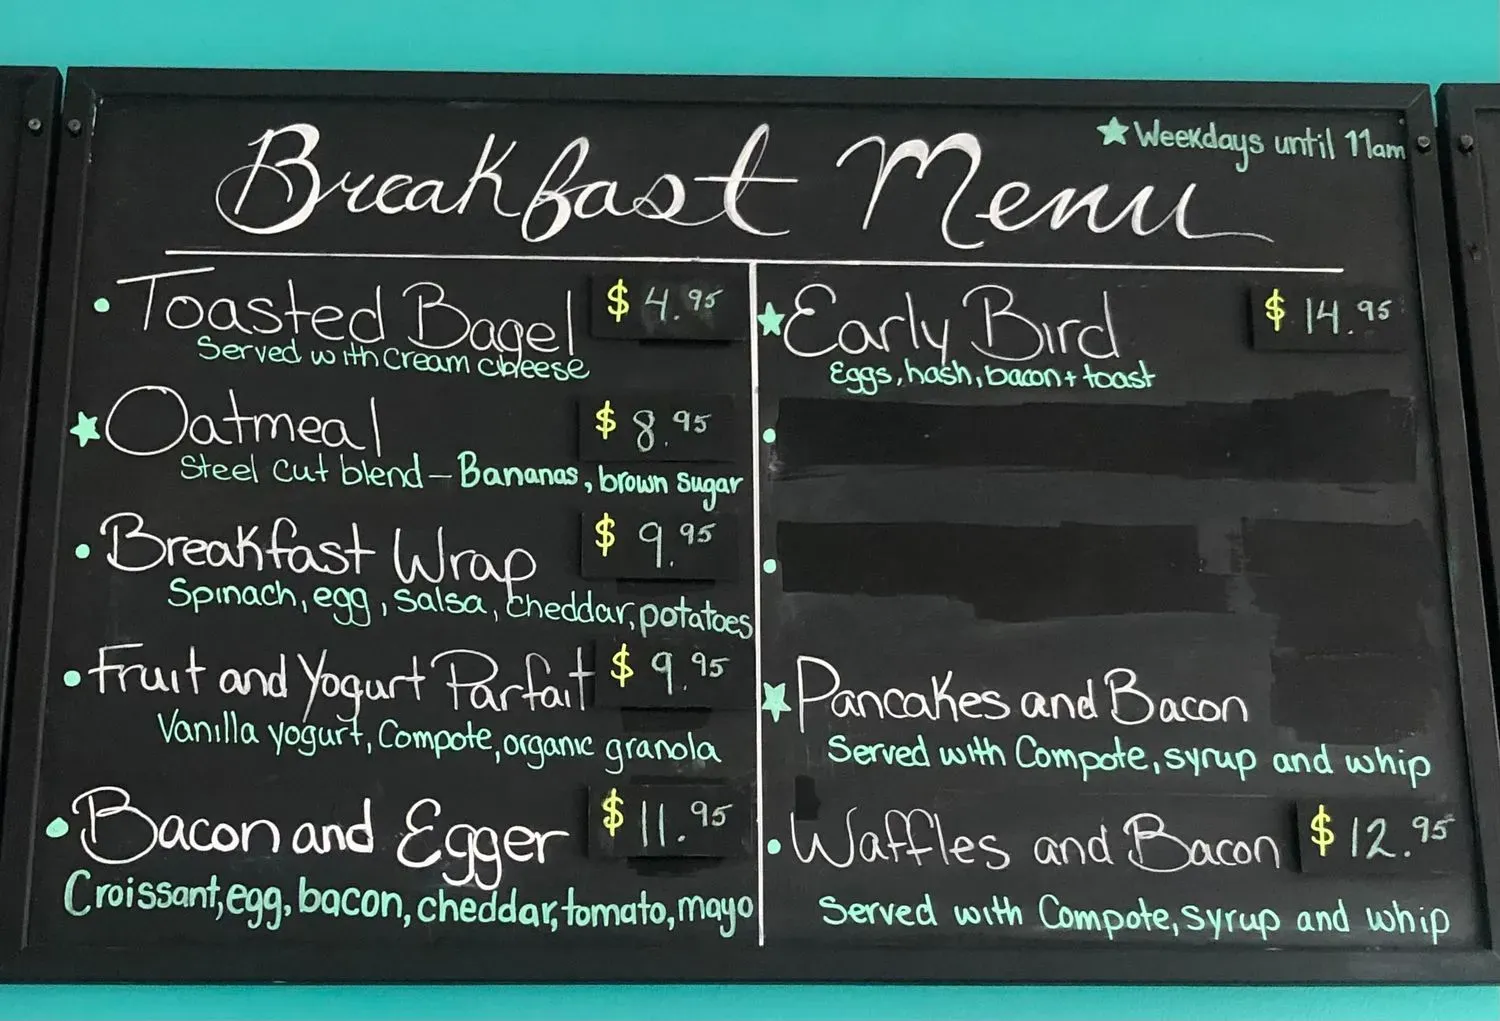 Breakfast Menu
★ Weekdays until 11am
• Toasted Bagel $4.95
Served with Cream cheese
★ Oatmeal $8.95
Steel cut blend – Bananas, brown sugar
• Breakfast Wrap $9.95
Spinach, egg, salsa, cheddar, potatoes
• Fruit and Yogurt Parfait $9.95
Vanilla yogurt, Compote, organic granola
• Bacon and Egger $11.95
Croissant, egg, bacon, cheddar, tomato, mayo
★ Early Bird $14.95
Eggs, hash, bacon + toast
•
•
★ Pancakes and Bacon
Served with Compote, syrup and whip
• Waffles and Bacon $12.95
Served with Compote, syrup and whip